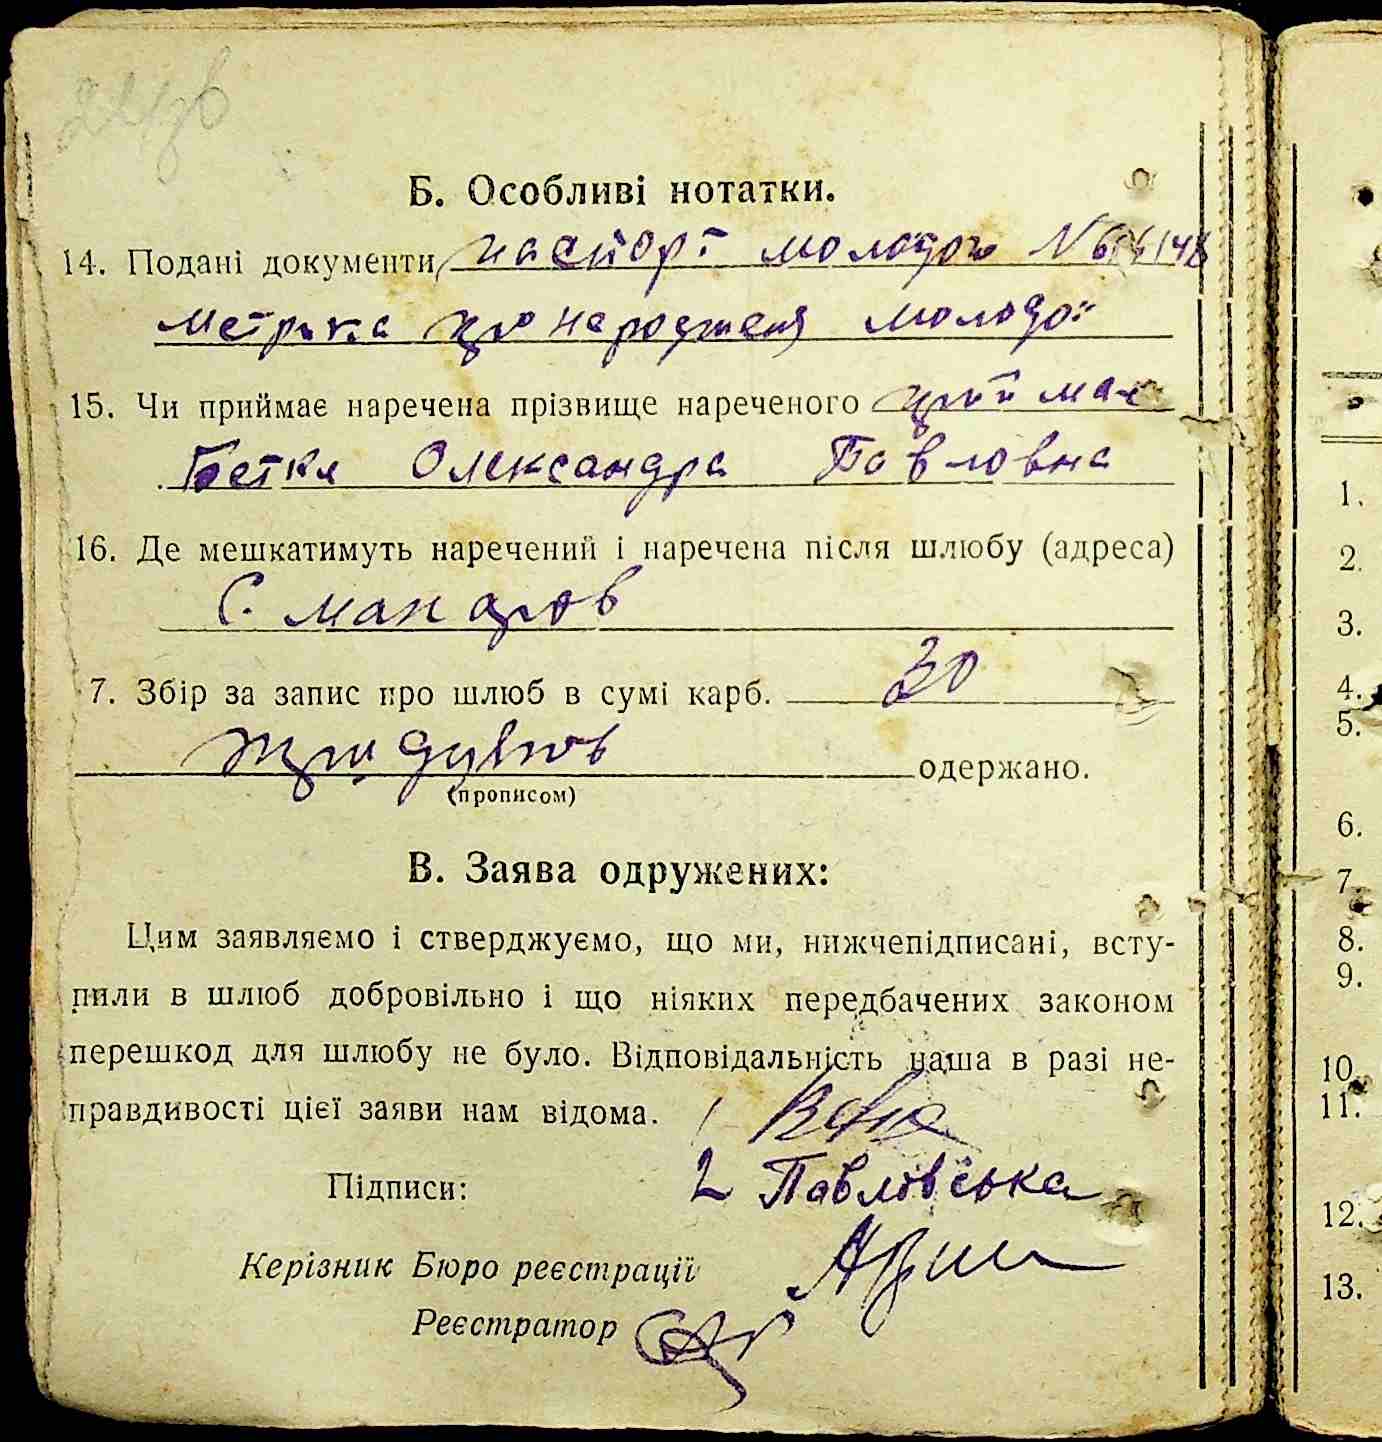 Б. Особливі нотатки.
14. Подані документи паспорт молодого №
Метрика про народженя молодої
15. Чи приймає наречена прізвище нареченого приймає
Бетка Олександра Павловна
16. Де мешкатимуть наречений і наречена після шлюбу (адреса)
с.
7. Збір за запис про шлюб в сумі карб. 30
одержано.
(прописом)
В. Заява одружених:
Цим заявляємо і стверджуємо, що ми, нижчепідписані, всту-
пили в шлюб добровільно і що ніяких передбачених законом
перешкод для шлюбу не було. Відповідальність наша в разі не-
правдивості цієї заяви нам відома. 1
Підписи: 2 Павловська
Керізник Бюро реєстрації
Реєстратор
1.
2.
3.
4.
5.
6.
7.
8.
9.
10.
11.
12.
13.